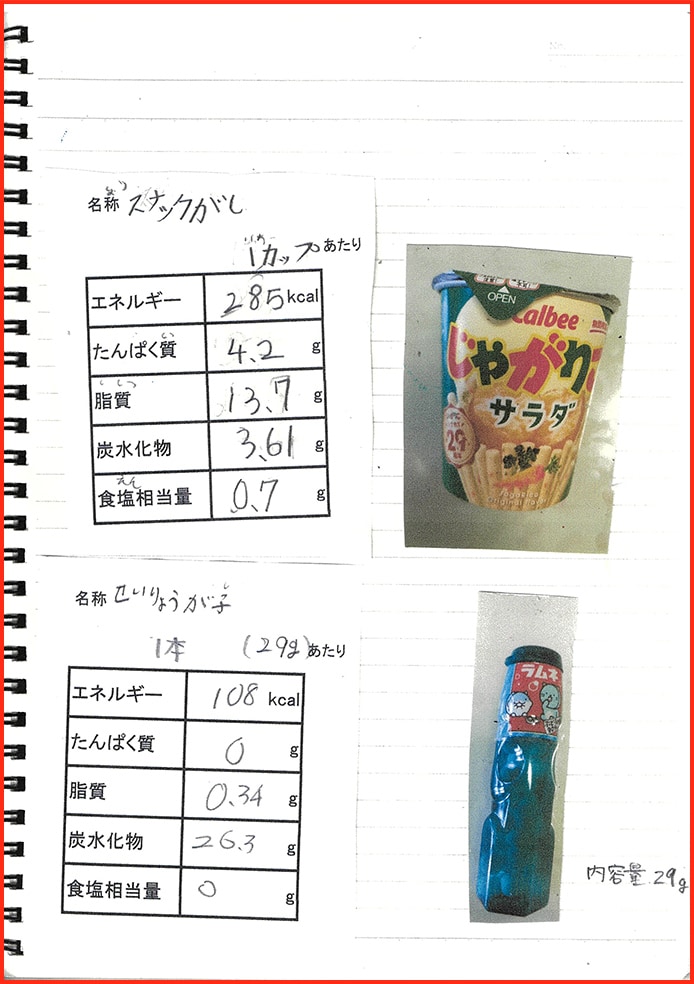 名称 スナックがし
1カップあたり
エネルギー 285 kcal
たんぱく質 4.2 g
脂質 13.7 g
炭水化物 3.61 g
食塩相当量 0.7 g
OPEN
Calbee
じゃがりこ
サラダ
名称 せいりょうが子
1本 (29g)あたり
エネルギー 108 kcal
たんぱく質 0 g
脂質 0.34 g
炭水化物 26.3 g
食塩相当量 0 g
ラムネ
内容量 29g